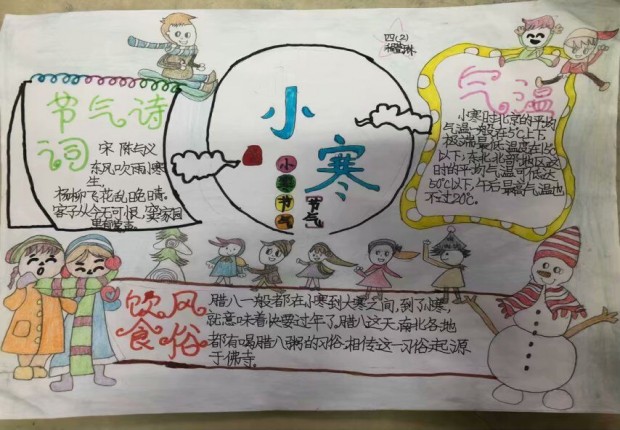 四(2)
小
寒
小寒节气
节气
节气诗
词
宋 陈与义
东风吹雨小寒
生,
杨柳飞花乱晚晴。
客子从今无可恨,窦家园
里有莺声。
气温
小寒时北京的平均
气温一般在-5℃上下,
极端最低温度在-15℃
以下;东北北部地区这
时的平均气温可低达
50℃以下,午后最高气温也
不过20℃。
饮风
食俗
腊八一般都在小寒到大寒之间,到了小寒,
就意味着快要过年了,腊八这天,南北各地
都有喝腊八粥的习俗.相传这一习俗起源
于佛寺。